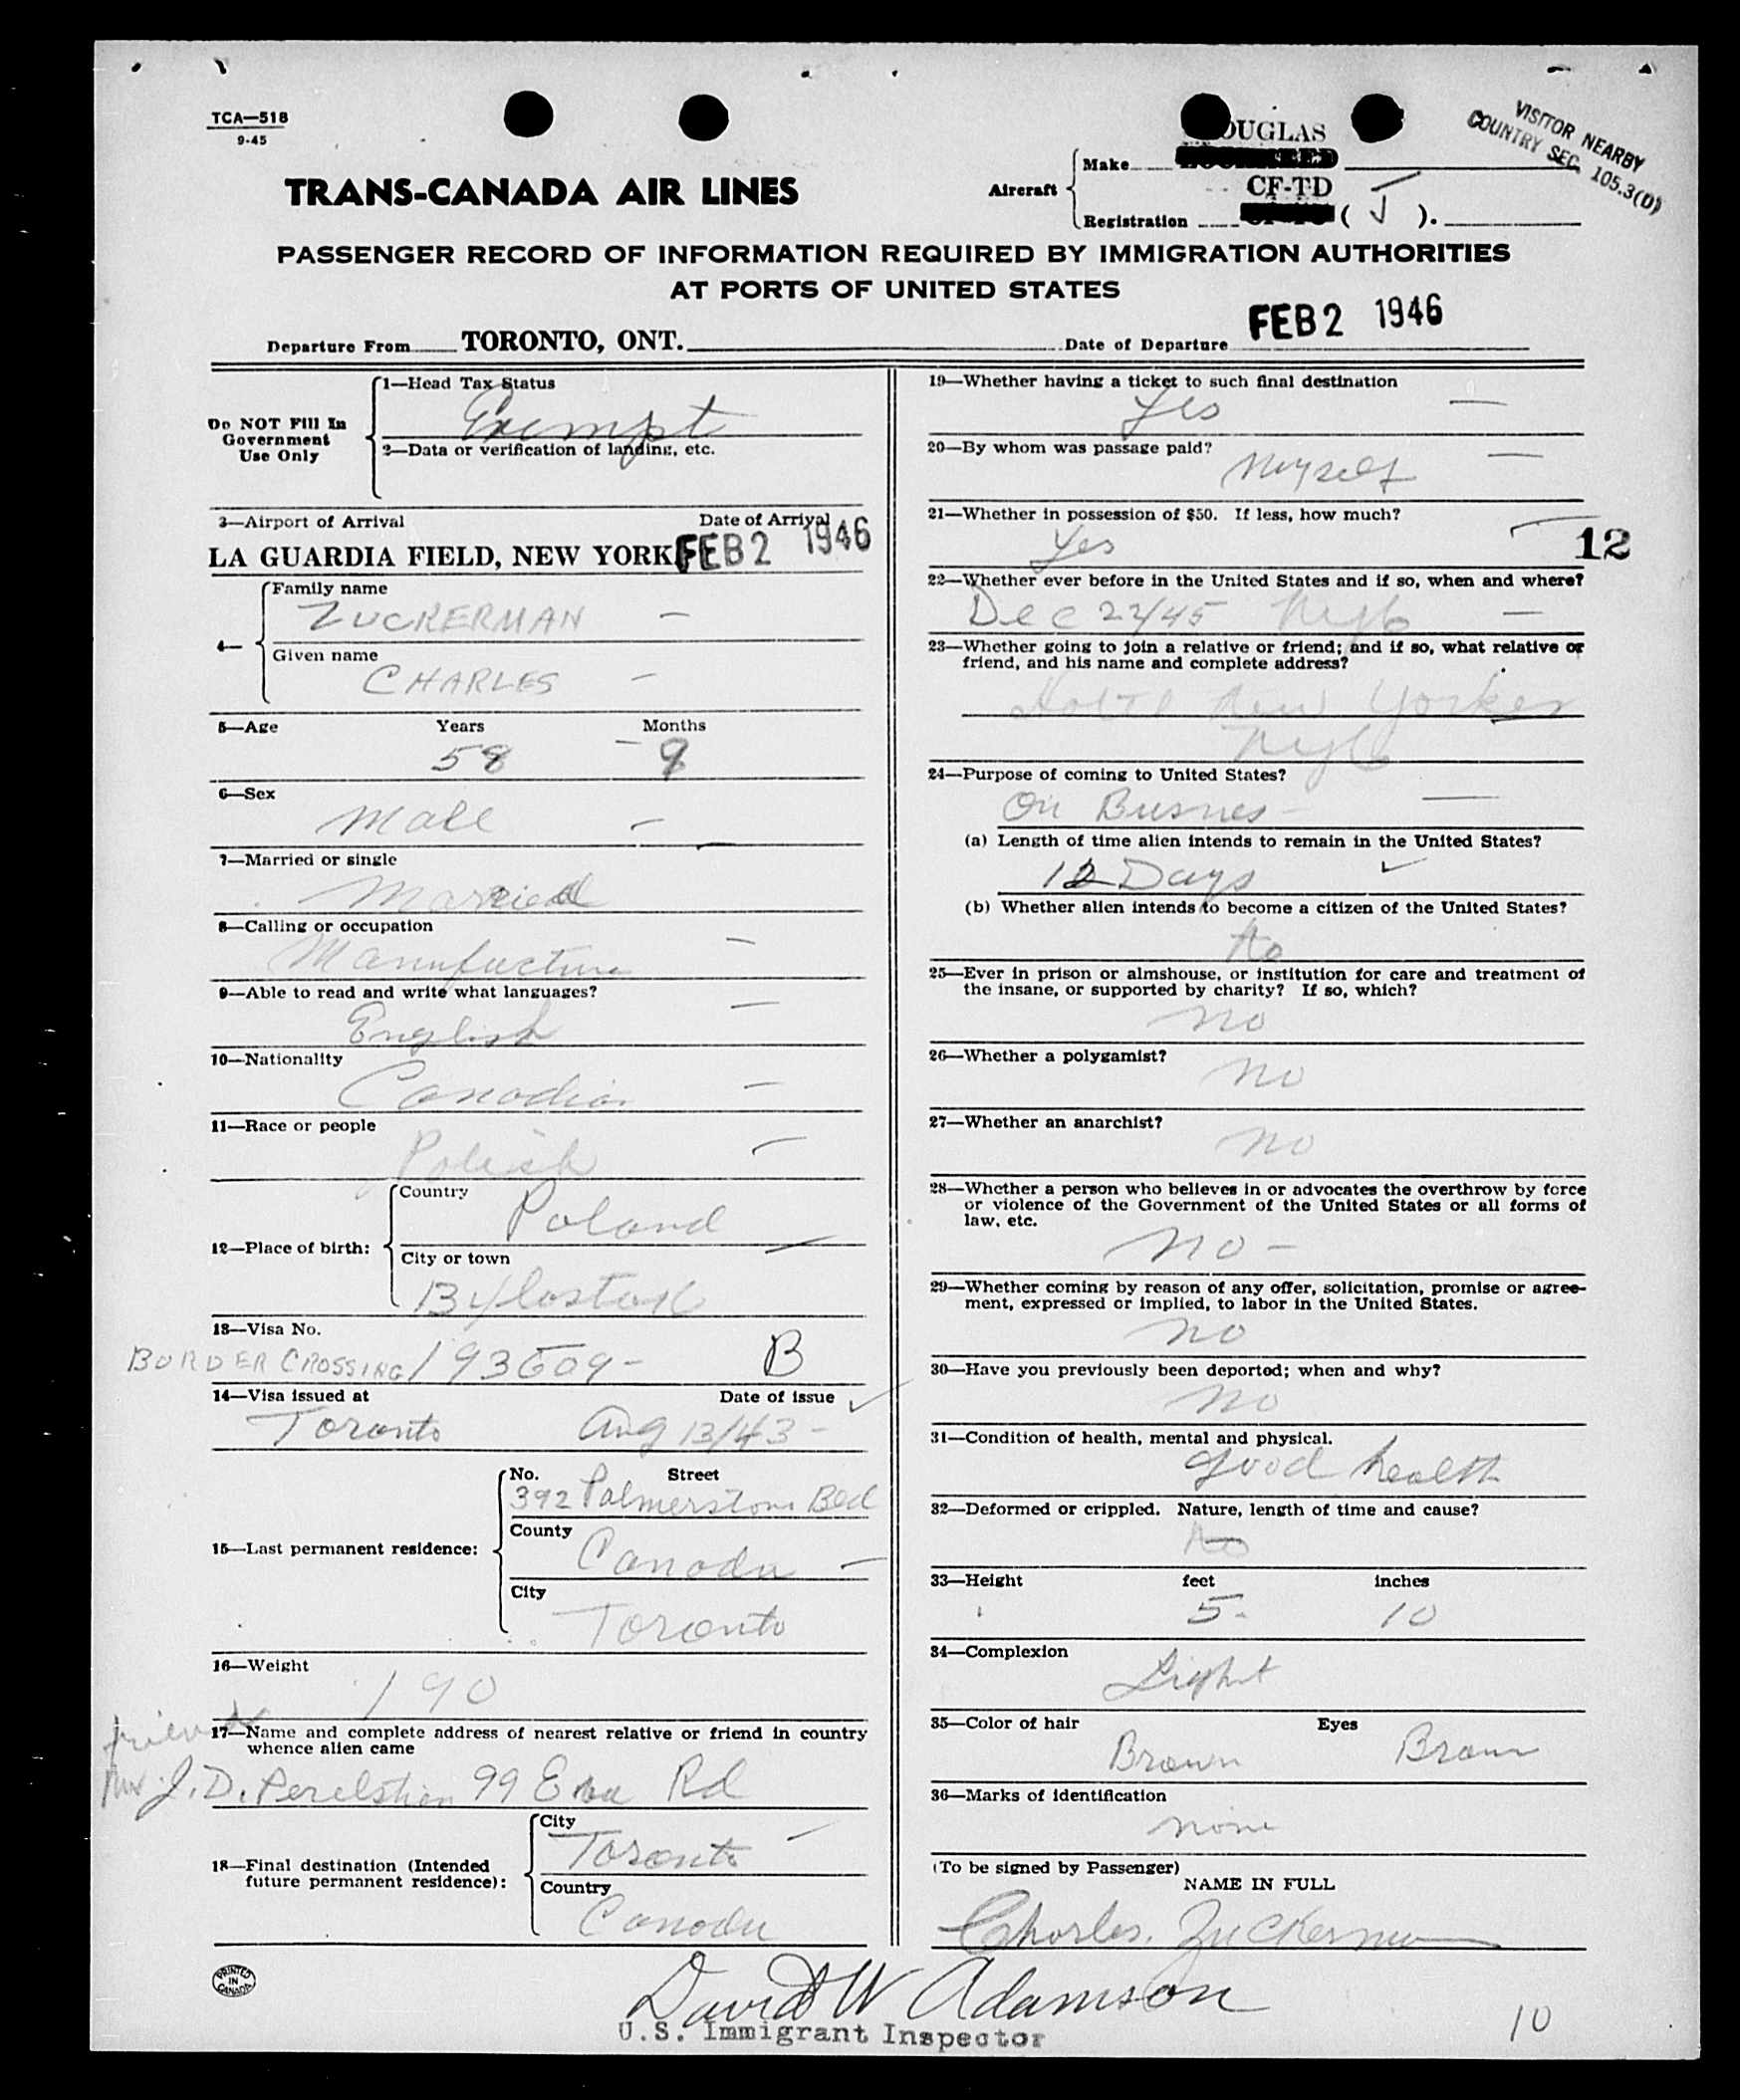 TCA—518
9-45
DOUGLAS
VISITOR NEARBY
COUNTRY SEC. 105.3(D)
TRANS-CANADA AIR LINES
Aircraft
Make
CF-TD
Registration ( J ).
PASSENGER RECORD OF INFORMATION REQUIRED BY IMMIGRATION AUTHORITIES
AT PORTS OF UNITED STATES
Departure From TORONTO, ONT.
Date of Departure FEB 2 1946
Do NOT Fill In
Government
Use Only
1—Head Tax Status
Exempt
2—Data or verification of landing, etc.
3—Airport of Arrival Date of Arrival
LA GUARDIA FIELD, NEW YORK FEB 2 1946
4—
Family name
ZUCKERMAN —
Given name
CHARLES —
5—Age Years Months
58 — 9
6—Sex
Male —
7—Married or single
Married
8—Calling or occupation
Manufacture —
9—Able to read and write what languages?
English —
10—Nationality
Canadian —
11—Race or people
Polish —
12—Place of birth:
Country
Poland
City or town
Bylostok
13—Visa No.
BORDER CROSSING 193609 - B
14—Visa issued at Date of issue
Toronto Aug 13/43 -
15—Last permanent residence:
No. Street
392 Palmerston Bld
County
Canada —
City
Toronto
16—Weight
190
friend
17—Name and complete address of nearest relative or friend in country
whence alien came
Mr. J. D. Perelstien 99 Rd
18—Final destination (Intended
future permanent residence):
City
Toronto
Country
Canada
19—Whether having a ticket to such final destination
Yes —
20—By whom was passage paid?
Myself —
21—Whether in possession of $50. If less, how much?
Yes
12
22—Whether ever before in the United States and if so, when and where?
Dec 22/45 NyC —
23—Whether going to join a relative or friend; and if so, what relative or
friend, and his name and complete address?
Hotel New Yorker
NyC
24—Purpose of coming to United States?
On Busnes —
(a) Length of time alien intends to remain in the United States?
12 Days
(b) Whether alien intends to become a citizen of the United States?
No
25—Ever in prison or almshouse, or institution for care and treatment of
the insane, or supported by charity? If so, which?
no
26—Whether a polygamist?
no
27—Whether an anarchist?
no
28—Whether a person who believes in or advocates the overthrow by force
or violence of the Government of the United States or all forms of
law, etc.
no -
29—Whether coming by reason of any offer, solicitation, promise or agree-
ment, expressed or implied, to labor in the United States.
no
30—Have you previously been deported; when and why?
no
31—Condition of health, mental and physical.
good health
32—Deformed or crippled. Nature, length of time and cause?
No
33—Height feet inches
5 - 10
34—Complexion
Light
35—Color of hair Eyes
Brown Brown
36—Marks of identification
none
(To be signed by Passenger)
NAME IN FULL
Charles. Zuckerman
PRINTED
IN
CANADA
David W Adamson
U.S. Immigrant Inspector
10